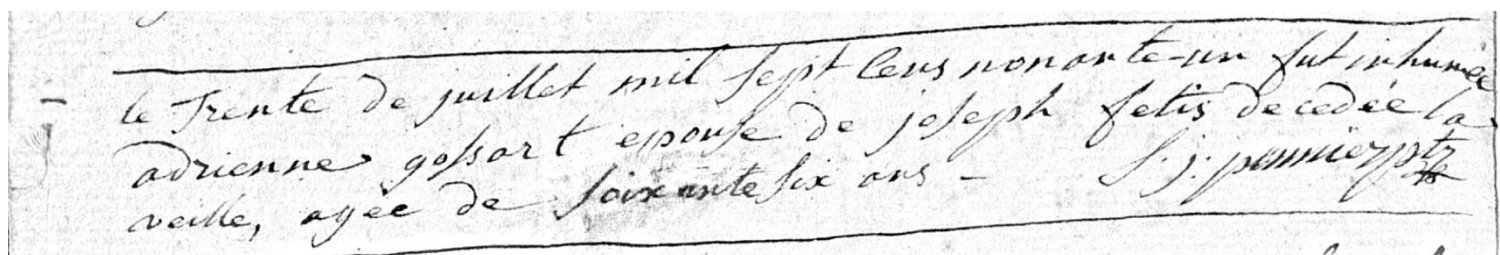 le Trente de juillet mil sept Cens nonante-un fut inhumée
adrienne gossart epouse de joseph fetis decedée la
veille, agée de soixante six ans -